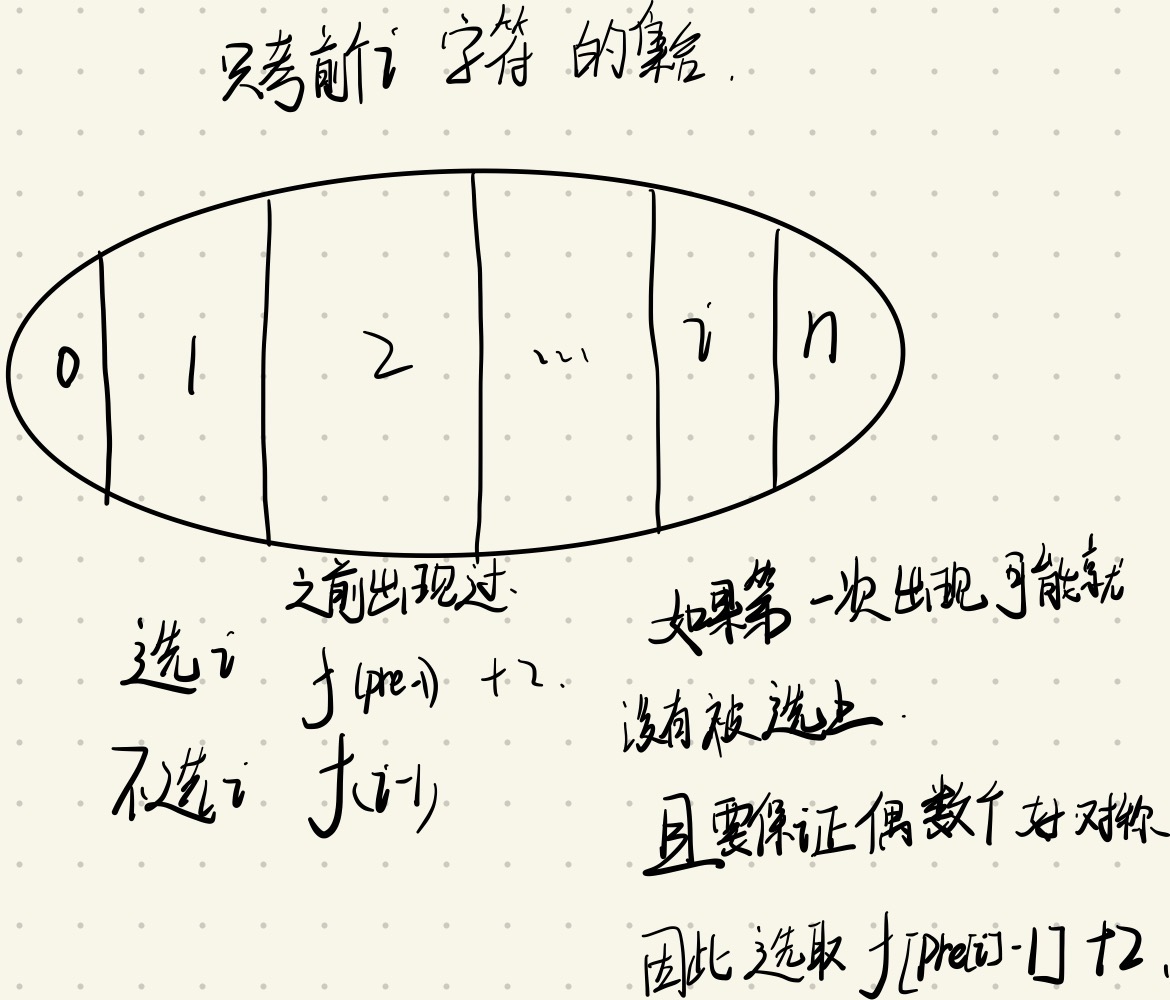 只考前i 字符 的集合.
0 1 2 ... i n
之前出现过.
选i f(pre-1) +2.
不选i f(i-1)
如果第一次出现可能就
没有被选上.
且要保证偶数个 好对称
因此选取 f[pre[i]-1] +2.